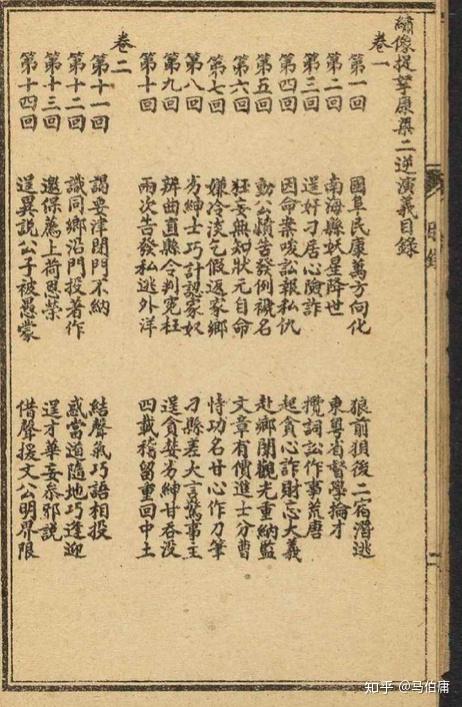 繡像捉拏康梁二逆演義目錄
卷一
第一回 國阜民康萬方向化 狼前狽後二宿潛逃
第二回 南海縣妖星降世 東粵省督學掄才
第三回 逞奸刁居心險詐 攬詞訟作事荒唐
第四回 因命案唆訟報私仇 起貪心詐財忘大義
第五回 動公憤告發例褫名 赴鄉闈觀光重納監
第六回 狂妄無知狀元自命 文章有價進士分曹
第七回 嫌冷淡乞假返家鄉 恃功名甘心作刀筆
第八回 劣紳士巧計認家奴 刁縣差大言驚事主
第九回 辨曲直縣令判冤枉 逞貪婪劣紳甘吞沒
第十回 兩次告發私逃外洋 四載稽留重回中土
卷二
第十一回 謁要津閉門不納 結聲氣巧語相投
第十二回 識同鄉沿門投著作 惑當道隨地巧逢迎
第十三回 邀保薦上荷恩榮 逞才華妄參邪說
第十四回 逞異說公子被愚蒙 借聲援文公明界限
知乎 @马伯庸